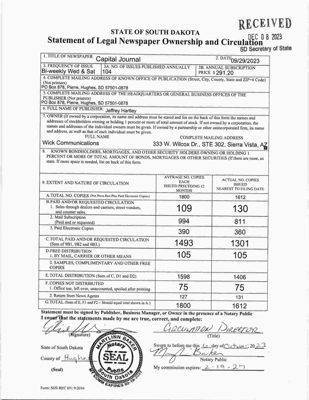 RECEIVED
DEC 08 2023
SD Secretary of State
STATE OF SOUTH DAKOTA
Statement of Legal Newspaper Ownership and Circulation
1. TITLE OF NEWSPAPER Capital Journal
2. DATE 09/29/2023
3. FREQUENCY OF ISSUE
Bi-weekly Wed & Sat
3A. NO. OF ISSUES PUBLISHED ANNUALLY
104
3B. ANNUAL SUBSCRIPTION
PRICE $ 291.20
4. COMPLETE MAILING ADDRESS OF KNOWN OFFICE OF PUBLICATION (Street, City, County, State and ZIP+4 Code)
(Not printers)
PO Box 878, Pierre, Hughes, SD 57501-0878
5. COMPLETE MAILING ADDRESS OF THE HEADQUARTERS OR GENERAL BUSINESS OFFICES OF THE
PUBLISHER (Not printer)
PO Box 878, Pierre, Hughes, SD 57501-0878
6. FULL NAME OF PUBLISHER: Jeffrey Hartley
7. OWNER (If owned by a corporation, its name and address must be stated and on the back of this form the names and
addresses of stockholders owning or holding 1 percent or more of total amount of stock. If not owned by a corporation, the
names and addresses of the individual owners must be given. If owned by a partnership or other unincorporated firm, its name
and address, as well as that of each individual must be given.
FULL NAME
COMPLETE MAILING ADDRESS
Wick Communications
333 W. Wilcox Dr., STE 302, Sierra Vista, AZ
8. KNOWN BONDHOLDERS, MORTGAGES, AND OTHER SECURITY HOLDERS OWNING OR HOLDING 1
PERCENT OR MORE OF TOTAL AMOUNT OF BONDS, MORTGAGES OR OTHER SECURITIES (If there are none, so
state. If more space is needed, list on back of this form.
9. EXTENT AND NATURE OF CIRCULATION
AVERAGE NO. COPIES
EACH
ISSUED PRECEDING 12
MONTHS
ACTUAL NO. COPIES
ISSUED
NEAREST TO FILING DATE
A. TOTAL NO. COPIES (Net Press Run Plus Paid Electronic Copies)
1800
1612
B. PAID AND/OR REQUESTED CIRCULATION
1. Sales through dealers and carriers, street vendors,
and counter sales.
109
130
2. Mail Subscription
(Paid and or requested)
994
811
3. Paid Electronic Copies
390
360
C. TOTAL PAID AND/OR REQUESTED CIRCULATION
(Sum of 9B1, 9B2 and 9B3.)
1493
1301
D. FREE DISTRIBUTION
1. BY MAIL, CARRIER OR OTHER MEANS
105
105
2. SAMPLES, COMPLIMENTARY AND OTHER FREE
COPIES
E. TOTAL DISTRIBUTION (Sum of C, D1 and D2)
1598
1406
F. COPIES NOT DISTRIBUTED
1. Office use, left over, unaccounted, spoiled after printing
75
75
2. Return from News Agents
127
131
G. TOTAL (Sum of E, F1 and F2 - Should equal total shown in A.)
1800
1612
Statement must be signed by Publisher, Business Manager, or Owner in the presence of a Notary Public
I swear that the statements made by me are true, correct, and complete:
CIRCULATION DIRECTOR
(Signature)
(Title)
State of South Dakota
Sworn to before me this 6 day of October, 2023
County of Hughes
Notary Public
(Seal)
My commission expires: 2-19-27
NOTARY
SEAL
PUBLIC
South Dakota